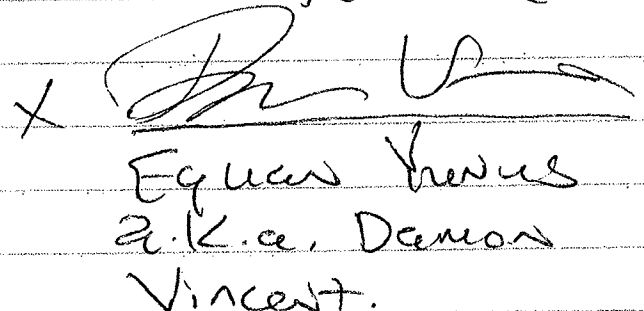 X
Equan Yunus
a.k.a. Damon
Vincent.